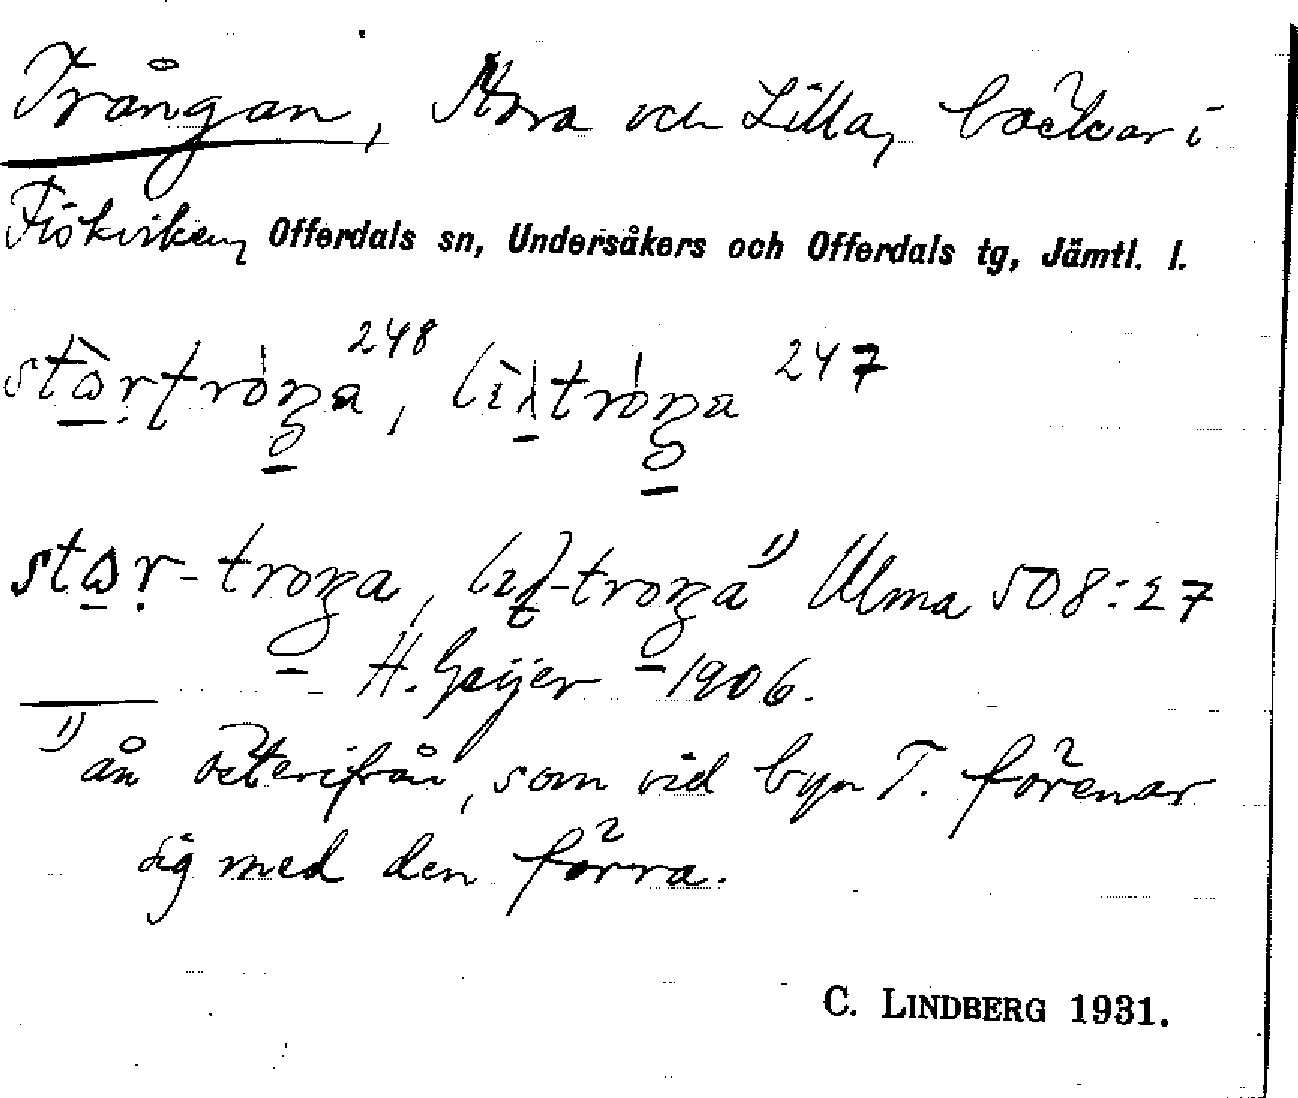 Trångan, Stora och Lilla, bäckar i
Fiskviken, Offerdals sn, Undersåkers och Offerdals tg, Jämtl. l.
248 247
Ulma 508:27
H. Geijer 1906.
1) ån österifrån, som vid byn T. förenar
sig med den förra.
C. LINDBERG 1931.